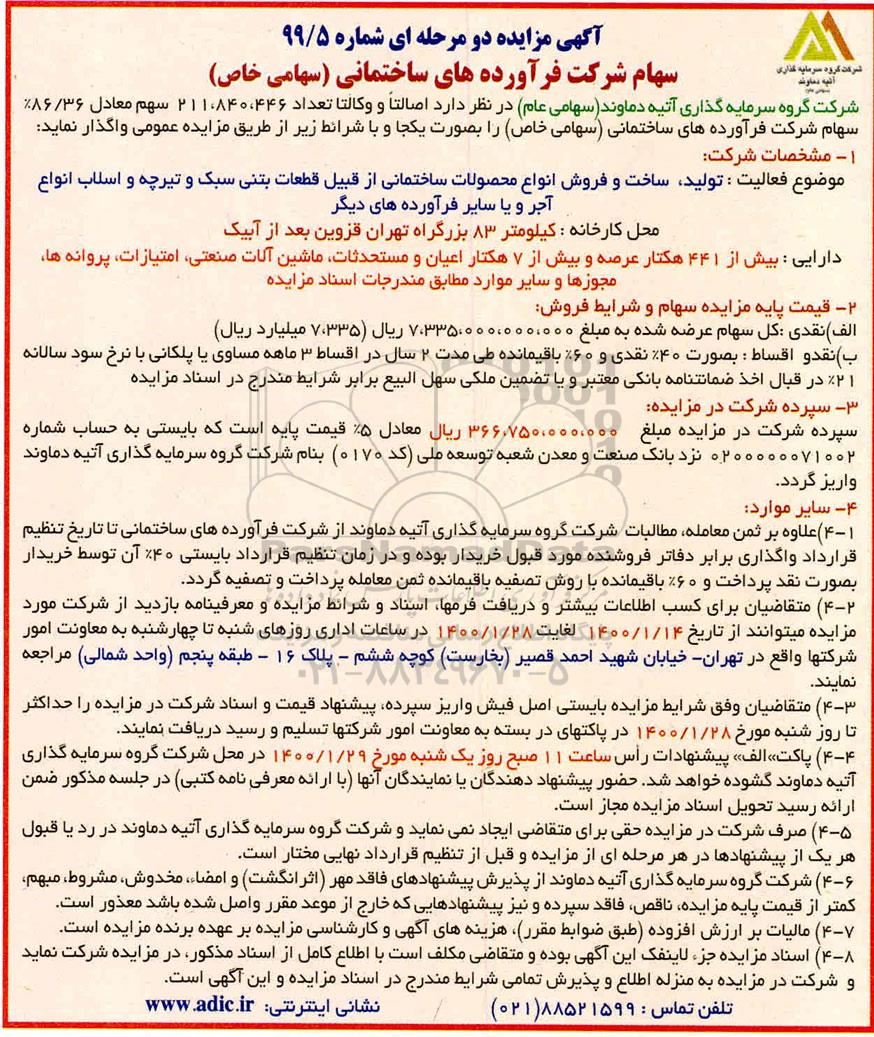 آگهی مزایده دو مرحله ای شماره ۹۹/۵
سهام شرکت فرآورده های ساختمانی (سهامی خاص)
شرکت گروه سرمایه گذاری
آتیه دماوند
(سهامی عام)
شرکت گروه سرمایه گذاری آتیه دماوند(سهامی عام) در نظر دارد اصالتاً و وکالتا تعداد ۲۱۱،۸۴۰،۴۴۶ سهم معادل ۸۶/۳۶٪
سهام شرکت فرآورده های ساختمانی (سهامی خاص) را بصورت یکجا و با شرائط زیر از طریق مزایده عمومی واگذار نماید:
۱- مشخصات شرکت:
موضوع فعالیت : تولید، ساخت و فروش انواع محصولات ساختمانی از قبیل قطعات بتنی سبک و تیرچه و اسلاب انواع
آجر و یا سایر فرآورده های دیگر
محل کارخانه : کیلومتر ۸۳ بزرگراه تهران قزوین بعد از آبیک
دارایی : بیش از ۴۴۱ هکتار عرصه و بیش از ۷ هکتار اعیان و مستحدثات، ماشین آلات صنعتی، امتیازات، پروانه ها،
مجوزها و سایر موارد مطابق مندرجات اسناد مزایده
۲- قیمت پایه مزایده سهام و شرایط فروش:
الف)نقدی :کل سهام عرضه شده به مبلغ ۷،۳۳۵،۰۰۰،۰۰۰،۰۰۰ ریال (۷،۳۳۵ میلیارد ریال)
ب)نقدو اقساط : بصورت ۴۰٪ نقدی و ۶۰٪ باقیمانده طی مدت ۲ سال در اقساط ۳ ماهه مساوی یا پلکانی با نرخ سود سالانه
۲۱٪ در قبال اخذ ضمانتنامه بانکی معتبر و یا تضمین ملکی سهل البیع برابر شرایط مندرج در اسناد مزایده
۳- سپرده شرکت در مزایده:
سپرده شرکت در مزایده مبلغ ۳۶۶،۷۵۰،۰۰۰،۰۰۰ ریال معادل ۵٪ قیمت پایه است که بایستی به حساب شماره
۰۲۰۰۰۰۰۰۷۱۰۰۲ نزد بانک صنعت و معدن شعبه توسعه ملی (کد ۰۱۷۰) بنام شرکت گروه سرمایه گذاری آتیه دماوند
واریز گردد.
۴- سایر موارد:
۴-۱)علاوه بر ثمن معامله، مطالبات شرکت گروه سرمایه گذاری آتیه دماوند از شرکت فرآورده های ساختمانی تا تاریخ تنظیم
قرارداد واگذاری برابر دفاتر فروشنده مورد قبول خریدار بوده و در زمان تنظیم قرارداد بایستی ۴۰٪ آن توسط خریدار
بصورت نقد پرداخت و ۶۰٪ باقیمانده با روش تصفیه باقیمانده ثمن معامله پرداخت و تصفیه گردد.
۴-۲) متقاضیان برای کسب اطلاعات بیشتر و دریافت فرمها، اسناد و شرائط مزایده و معرفینامه بازدید از شرکت مورد
مزایده میتوانند از تاریخ ۱۴۰۰/۱/۱۴ لغایت ۱۴۰۰/۱/۲۸ در ساعات اداری روزهای شنبه تا چهارشنبه به معاونت امور
شرکتها واقع در تهران- خیابان شهید احمد قصیر (بخارست) کوچه ششم - پلاک ۱۶ - طبقه پنجم (واحد شمالی) مراجعه
نمایند.
۴-۳) متقاضیان وفق شرایط مزایده بایستی اصل فیش واریز سپرده، پیشنهاد قیمت و اسناد شرکت در مزایده را حداکثر
تا روز شنبه مورخ ۱۴۰۰/۱/۲۸ در پاکتهای در بسته به معاونت امور شرکتها تسلیم و رسید دریافت نمایند.
۴-۴) پاکت»الف» پیشنهادات رأس ساعت ۱۱ صبح روز یک شنبه مورخ ۱۴۰۰/۱/۲۹ در محل شرکت گروه سرمایه گذاری
آتیه دماوند گشوده خواهد شد. حضور پیشنهاد دهندگان یا نمایندگان آنها (با ارائه معرفی نامه کتبی) در جلسه مذکور ضمن
ارائه رسید تحویل اسناد مزایده مجاز است.
۴-۵) صرف شرکت در مزایده حقی برای متقاضی ایجاد نمی نماید و شرکت گروه سرمایه گذاری آتیه دماوند در رد یا قبول
هر یک از پیشنهادها در هر مرحله ای از مزایده و قبل از تنظیم قرارداد نهایی مختار است.
۴-۶) شرکت گروه سرمایه گذاری آتیه دماوند از پذیرش پیشنهادهای فاقد مهر (اثرانگشت) و امضاء، مخدوش، مشروط، مبهم،
کمتر از قیمت پایه مزایده، ناقص، فاقد سپرده و نیز پیشنهادهایی که خارج از موعد مقرر واصل شده باشد معذور است.
۴-۷) مالیات بر ارزش افزوده (طبق ضوابط مقرر)، هزینه های آگهی و کارشناسی مزایده بر عهده برنده مزایده است.
۴-۸) اسناد مزایده جزء لاینفک این آگهی بوده و متقاضی مکلف است با اطلاع کامل از اسناد مذکور، در مزایده شرکت نماید
و شرکت در مزایده به منزله اطلاع و پذیرش تمامی شرایط مندرج در اسناد مزایده و این آگهی است.
تلفن تماس : ۸۸۵۲۱۵۹۹(۰۲۱) نشانی اینترنتی: www.adic.ir
ParsNamadData
۰۲۱-۸۸۳۴۹۶۷۰-۵